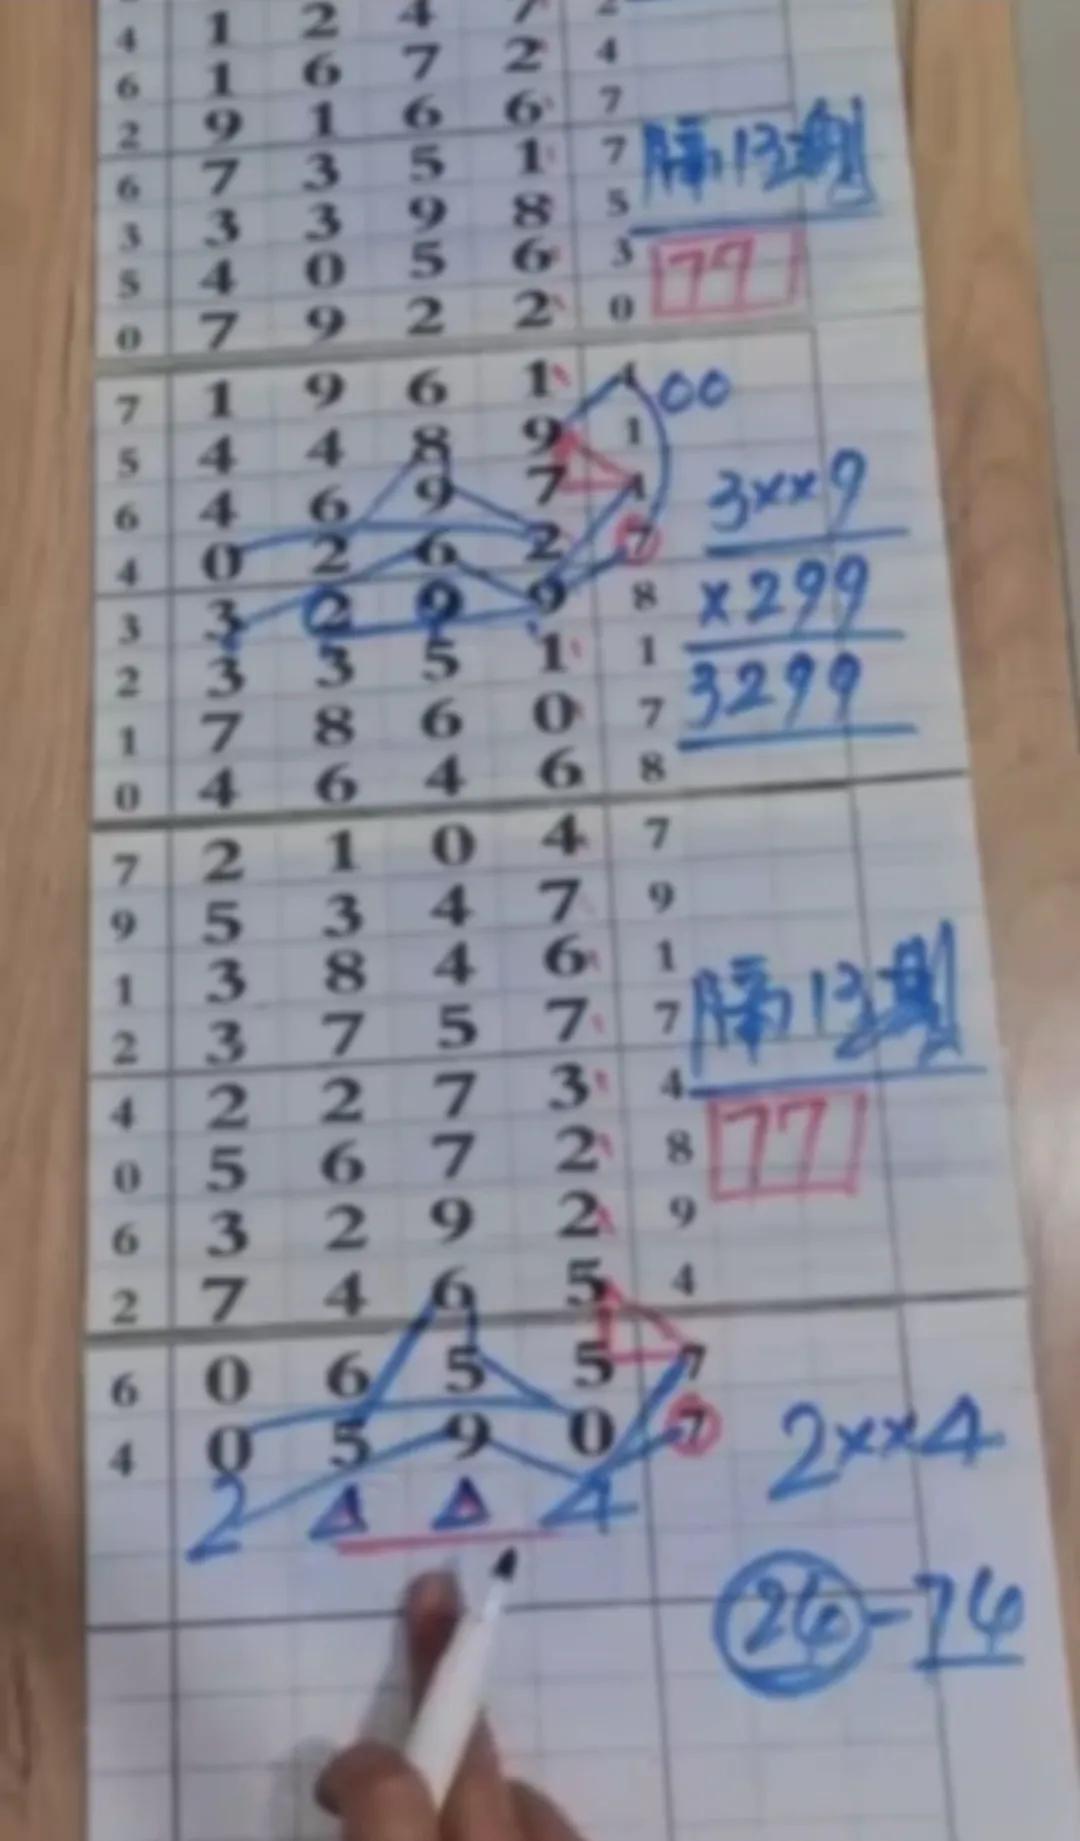 4 1 2 4 7 2
6 1 6 7 2 4
2 9 1 6 6 7
6 7 3 5 1 7 隔13期
3 3 3 9 8 5
5 4 0 5 6 3 77
0 7 9 2 2 0
7 1 9 6 1 1 00
5 4 4 8 9 1
6 4 6 9 7 1 3××9
4 0 2 6 2 7
3 3 2 9 9 8 ×299
2 3 3 5 1 1 3299
1 7 8 6 0 7
0 4 6 4 6 8
7 2 1 0 4 7
9 5 3 4 7 9
1 3 8 4 6 1
2 3 7 5 7 7 隔13期
4 2 2 7 3 4
0 5 6 7 2 8 77
6 3 2 9 2 9
2 7 4 6 5 4
6 0 6 5 5 7
4 0 5 9 0 7 2××4
2 4
26-76